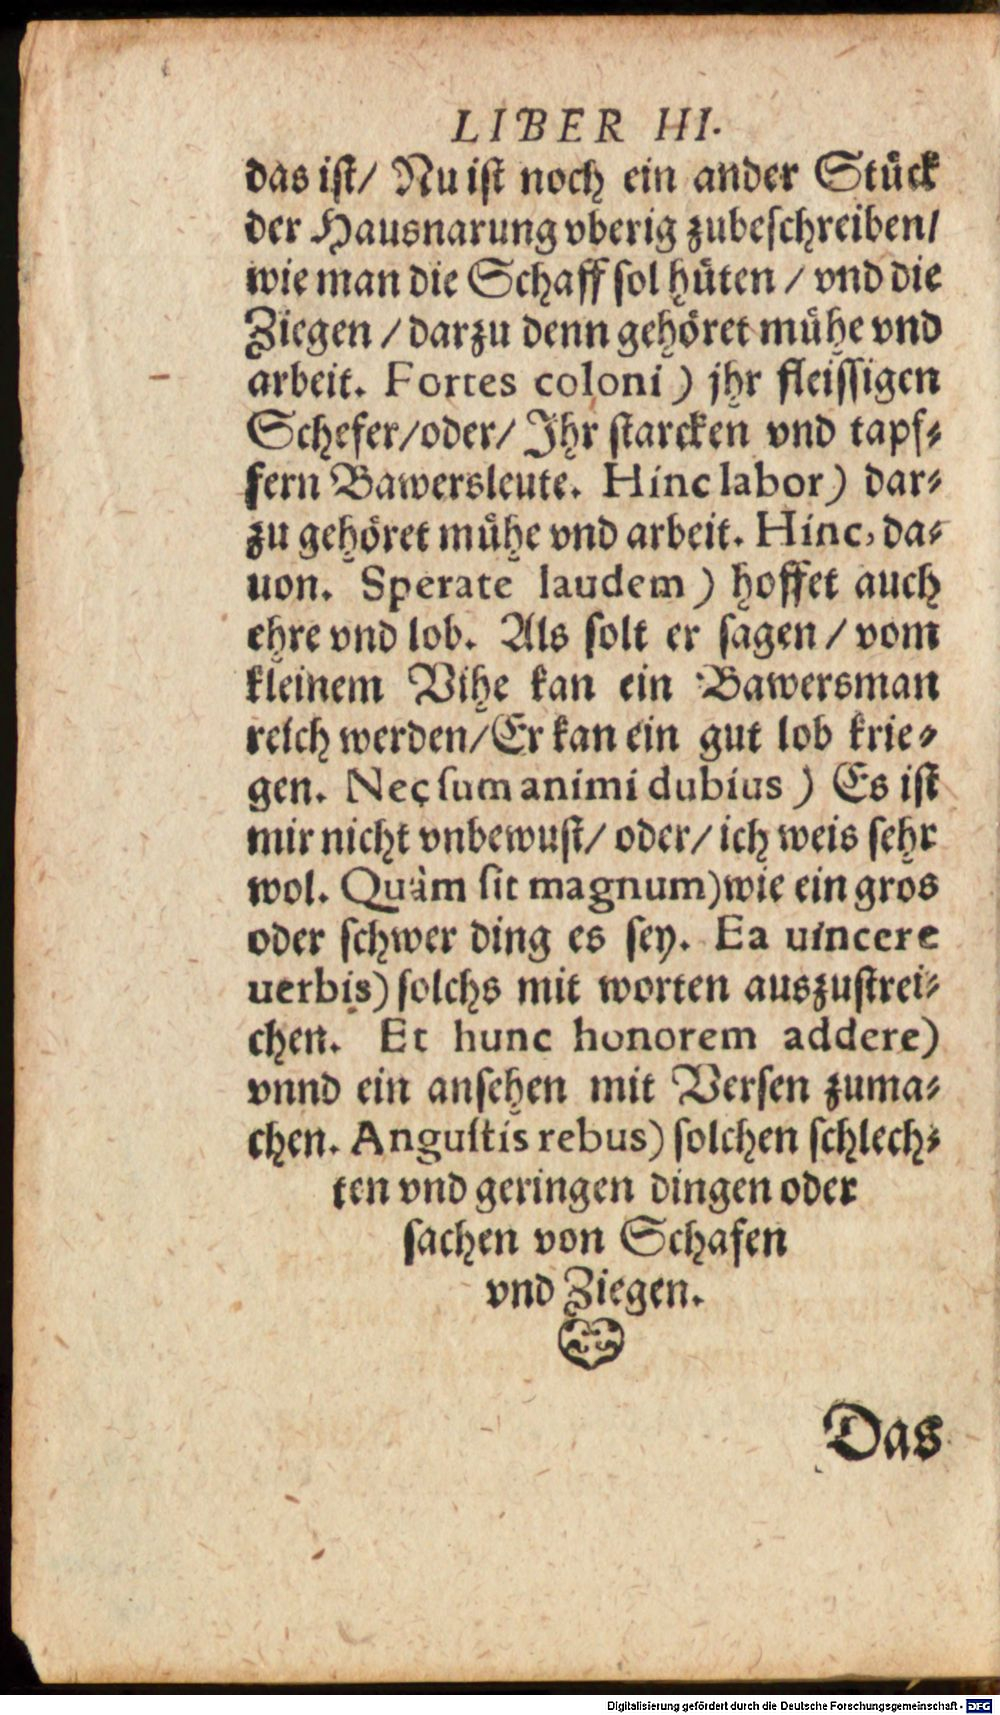 LIBER III.
das ist/ Nu ist noch ein ander Stück
der Hausnarung vberig zubeschreiben/
wie man die Schaff sol hüten / vnd die
Ziegen / darzu denn gehöret mühe vnd
arbeit. Fortes coloni ) jhr fleissigen
Schefer/oder/ Ihr starcken vnd tapf⸗
fern Bawersleute. Hinc labor) dar⸗
zu gehöret mühe vnd arbeit. Hinc, da⸗
uon. Sperate laudem ) hoffet auch
ehre vnd lob. Als solt er sagen / vom
kleinem Vihe kan ein Bawersman
reich werden/Er kan ein gut lob krie⸗
gen. Nec sum animi dubius ) Es ist
mir nicht vnbewust/ oder/ ich weis sehr
wol. Quàm sit magnum)wie ein gros
oder schwer ding es sey. Ea uincere
uerbis) solchs mit worten auszustrei⸗
chen. Et hunc honorem addere)
vnnd ein ansehen mit Versen zuma⸗
chen. Angustis rebus) solchen schlech⸗
ten vnd geringen dingen oder
sachen von Schafen
vnd Ziegen.
Das
Digitalisierung gefördert durch die Deutsche Forschungsgemeinschaft - DFG